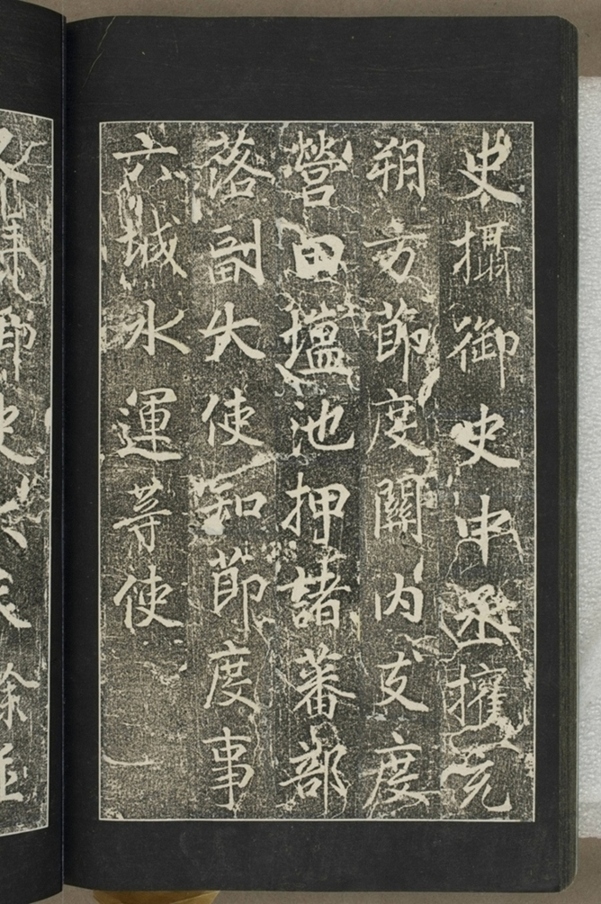 史攝御史中丞權充
朔方節度關内支度
營田塩池押諸蕃部
落副大使知節度事
六城水運等使